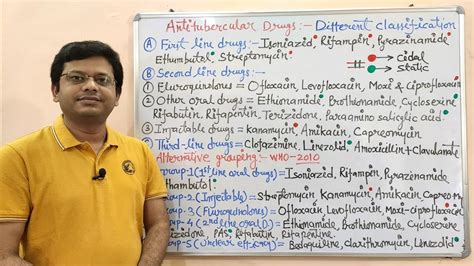 Antitubercular Drugs:- Different classification
Ⓐ First line drugs:- Isoniazid, Rifampin, Pyrazinamide
Ethumbutol, Streptomycin
Cidal
Static
Ⓑ Second line drugs:-
① Fluroquholones = Ofloxacin, Levofloxacin, Moxi & Ciprofloxacin
② Other oral drugs = Ethionamide, Brothionamide, Cycloserine
Rifabutin, Rifapentin, Terizidone, Paraamino salicylic acid.
③ Injectable drugs = Kanamycin, Amikacin, Capreomycin
Third-line drugs = Clofazimine, Linezolid, Amoxicillin + Clavulanate
Alternative grouping:- WHO-2010
Group-1 (1st line oral drugs) = Isoniazid, Rifampin, Pyrazinamide
Ethambutol.
Group-2 (Injectable) = Kanamycin, Amikacin,
Group-3 (Fluroquholones) = Ofloxacin, Levofloxacin, Moxi-
Group-4 (2nd line oral) = Ethionamide, Brothionamide, Cycloserine
PAS, Rifabutin, Rifapentine.
Group-5 (Unclear efficacy) = Bedaquiline, clarithromycin, Linezolid